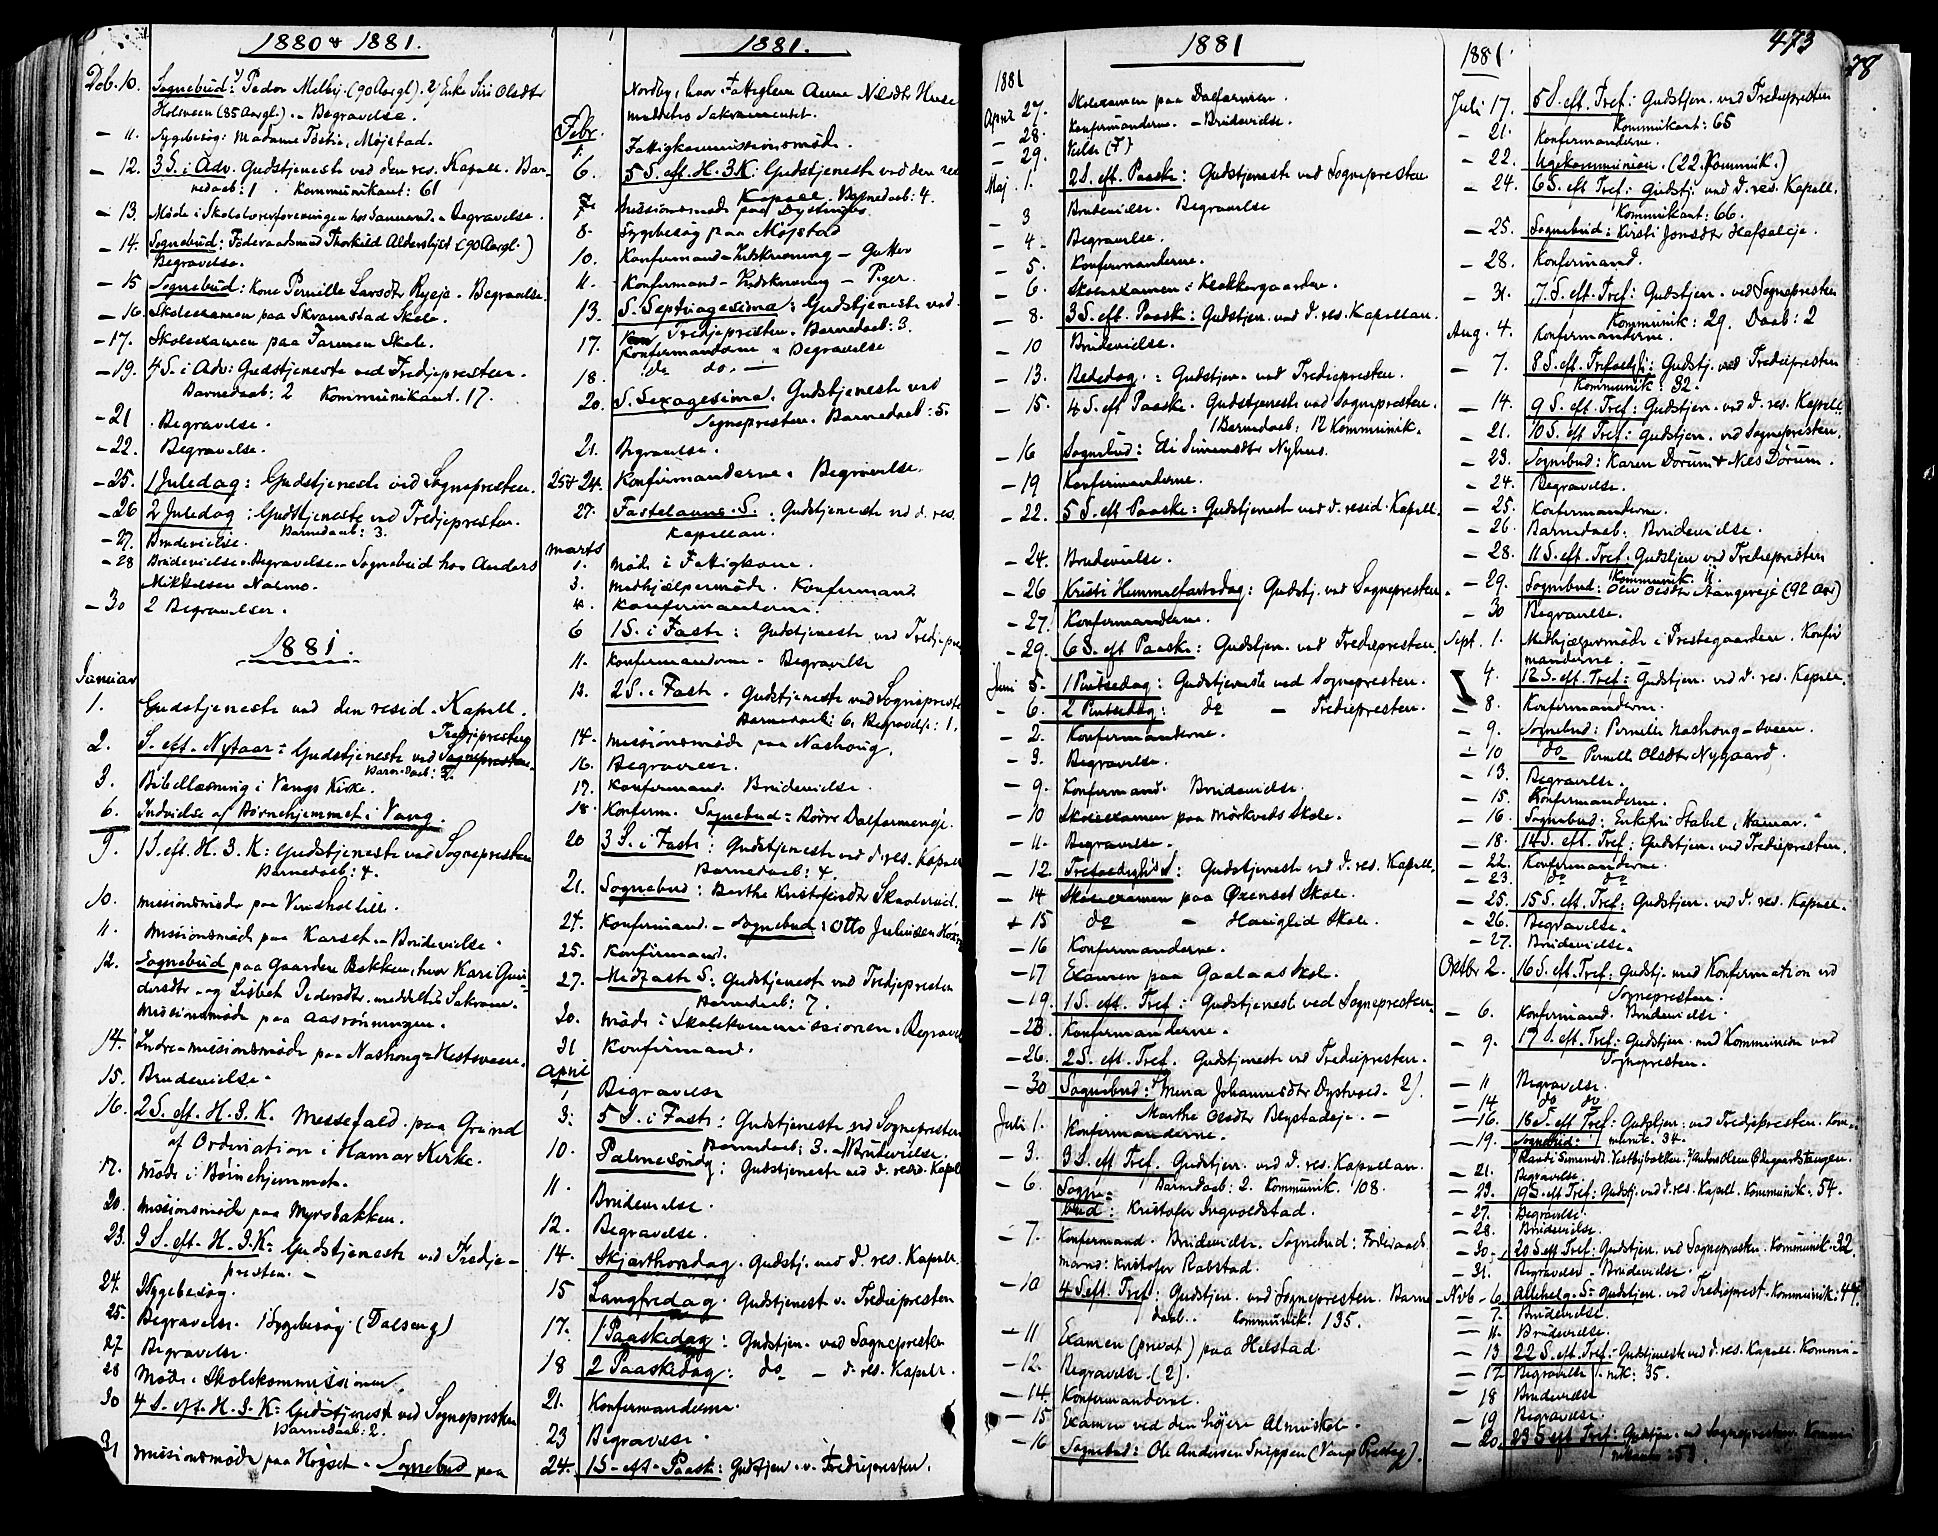 1880 & 1881.
Dcb. 10. Sognebud: 1/ Peder Melby (90 Aargl). 2/ Enke Siri Olsdtr
Holmeen (85 Aargl.). - Begravelse.
- 11. Sygebesøg: Madame Tostie, Møjstad.
- 12. 3 S. i Adv. Gudstjeneste ved den res. Kapell. Bar-
nedaab: 1. Kommunikant: 61
- 13. Møde i Skolelærerforeningen hos Sannerud. - Begravelse.
- 14. Sognebud: Føderaadsmand Thorkild Alderslyst (90 Aargl.)
Begravelse.
- 15 Sognebud: Kone Pernille Larsdtr Ryeje. Begravelse.
- 16. Skoleexamen paa Skramstad Skole.
- 17. Skoleexamen paa Farmen Skole.
- 19. 4 S. i Adv: Gudstjeneste ved Tredjepresten.
Barnedaab: 2 Kommunikant. 17.
- 21 Begravelse.
- 22. Begravelse.
- 25. 1 Juledag: Gudstjeneste ved Sognepresten.
- 26 2 Juledag: Gudstjeneste ved Tredjepresten.
Barnedaab: 3.
- 27. Brudevielse.
- 28 Brudevielse. Begravelse. Sognebud hos Anders
Mikkelsen Nalmo.
- 30 2 Begravelser.
1881.
Januar
1. Gudstjeneste ved den resid. Kapell.
Tredjepresten
2. S. eft. Nytaar: Gudstjeneste ved Sognepresten.
Barnedaab: 2.
3. Bibellæsning i Vangs Kirke.
6. Indvielse af Børnehjemmet i Vang.
9. 1 S. eft. H. 3. K: Gudstjeneste ved Sognepresten
Barnedaab: 4.
10. Missionsmøde paa Vendkollille.
11. Missionsmøde paa Karset. - Brudevielse.
12. Sognebud paa Gaarden Bekken, hvor Kari Gun-
dersdtr. og Lisbet Pedersdtr. meddeltes Sakram.
Missionsmøde paa Aasrønningen.
14. Indremissionsmøde paa Nashoug-Hestsveen.
15. Brudevielse.
16. 2 S. eft. H. 3. K. Messefald paa Grund
af Ordination i Hamar Kirke.
17. Møde i Børnehjemmet.
20. Missionsmøde paa Myrsbakken.
23. 3 S. eft. H. 3. K: Gudstjeneste ved Tredje-
presten. -
24. Sygebesøg.
25. Begravelse. Sygebesøg (Dalseng)
27 Begravelse.
28 Møde i Skolekommissionen.
30 4 S. eft. H. 3. K: Gudstjeneste ved Sognepresten
Barnedaab: 2.
31 Missionsmøde paa Høgset. Sognebud paa
1881.
Nordby, hvor Fattiglem Anne Nilsdtr Huse
meddeltes Sakramentet.
Febr.
1. Fattigkommissionsmøde.
6. 5 S. eft. H. 3 K: Gudstjeneste ved den res
Kapell. Barnedaab: 4.
7. Missionsmøde paa Dystingbo.
8. Sygebesøg paa Møjstad
10. Konfirmand-Indskrivning - Gutter
11. Konfirmand-Indskrivning - Piger.
13. S. Septuagesima: Gudstjeneste ved
Tredjepresten. Barnedaab: 3.
17. Konfirmanderne. Begravelse
18. do do. -
20. S. Sexagesima. Gudstjeneste ved
Sognepresten. Barnedaab: 5.
21. Begravelse.
25 & 24. Konfirmanderne. Begravelse.
27. Fastelavns. S. Gudstjeneste ved d. res.
Kapellan.
Marts
1. Møde i Fattigkom.
3. Medhjælpermøde. Konfirmand
4. Konfirmanderne.
6 1 S. i Faste: Gudstjeneste ved Tredjepre
11. Konfirmanderne. Begravelse
13. 2 S. i Faste. Gudstjeneste ved Sognepreste
Barnedaab: 6, Begravelse: 1.
14. Missionsmøde paa Nashoug.
16. Begravelse.
17. Konfirmand. Brudevielse.
18. Konfirm. Sognebud: Børre Dalfarmeneje.
20 3 S. i Faste: Gudstjeneste ved d. res. Kapell
Barnedaab: 4.
21. Sognebud: Berthe Kristofersdtr Skaalerud.
24. Konfirmand. - Sognebud: Otto Juliussen
25. Konfirmand.
27. Midfaste S: Gudstjeneste ved Tredjepresten
Barnedaab: 7.
30. Møde i Skolekommissionen. Begravel
31 Konfirmand.
April
1 Begravelse
3. 5 S. i Faste: Gudstjeneste ved Sognepresten
Barnedaab: 3. Brudevielse.
10. Palmesøndg: Gudstjeneste ved d. resid. Kapell
11. Brudevielse.
12. Begravelse.
14. Skjærthorsdag. Gudstj. ved d. res. Kapell.
15 Langfredag. Gudstjenest v. Tredjepresten
17. 1 Paaskedag: Gudstjen. ved Sognepresten
18 2 Paaskedag: do - d. res. Kapell.
21. Konfirmanderne.
23 Begravelse.
24. 1 S. eft. Paaske: Gudstjen. v. Tredjepresten.
1881
1881
April 27. Skoleexamen paa Dalfarmen.
- 28. Konfirmanderne. - Brudevielse.
- 29. Vielse (F)
Maj. 1. 2 S. eft. Paaske: Gudstjeneste ved Sognepresten
- 3 Brudevielse. Begravelse
- 4. Begravelse.
- 5. Konfirmanderne.
- 6. Skoleexamen i Klokkergaarden.
- 8. 3 S. eft. Paaske: Gudstjen. ved d. res. Kapellan.
- 10 Brudevielse.
- 13. Bededag: Gudstjen. ved Tredjepresten.
- 15. 4 S. eft Paaske. Gudstjeneste ved Sognepresten.
1 Barnedaab: 12 Kommunik.
- 16 Sognebud: Eli Simensdtr Nyhus.
- 19 Konfirmanderne.
- 22. 5 S. eft Paaske: Gudstjeneste ved d. resid. Kapell.
- 24. Brudevielse.
- 26 Kristi Himmelfartsdag: Gudstj. ved Sognepresten.
- 27. Konfirmanderne.
- 29. 6 S. eft Paaske: Gudstjeneste ved Tredjepresten.
Juni 5. 1 Pintsedag: Gudstjeneste ved Sognepresten.
- 6. 2 Pintsedag: do - Tredjepresten.
- 2. Konfirmanterne.
- 3. Begravelse.
- 9. Konfirmand. Brudevielse.
- 10 Skoleexamen paa Mørkveds Skole.
- 11. Begravelse.
- 12. Trefoldighds S: Gudstjeneste ved d. res. Kapell.
- 14 Skoleexamen paa Øxenset Skole.
+ 15 do - Haviglid Skole.
- 16 Konfirmanderne.
- 17 Examen paa Gaalaas Skole.
- 19. 1 S. eft. Tref.: Gudstjenest. ved Sognepresten.
- 23. Konfirmanderne.
- 26. 2 S. eft. Tref. Gudstjeneste ved Tredjepresten.
- 30 Sognebud: 1/ Mina Johannesdtr Dystvold. 2/.
Marthe Olsdtr Blystadeje. -
Juli 1. Konfirmanderne.
- 3. 3 S. eft Tref. Gudstjen. ved d. res. Kapellan.
Barnedaab: 2. Kommunik. 108.
- 6. Sogne-
bud: Kristofer Ingvoldstad.
- 7. Konfirmand. Brudevielse. Sognebud: Føderaads
mand: Kristofer Rolstad.
- 10 4 S eft. Tref: Gudstjen. ved Sognepresten. Barne
daab.. Kommunik. 135.
- 11 Examen (privat) paa Helstad.
- 12. Begravelse (2).
- 14. Konfirmanderne.
- 15. Examen ved den høiere Almuskole.
- 16 Sognebud: Ole Andersen Snippen (Vang Prestg).
473
78
1881.
Juli 17. 5 S. eft. Tref: Gudstjen. ved Tredjepresten
Kommunikant: 65
- 21. Konfirmanderne.
- 22. Ugekommunion. (22 Kommunik.)
- 24. 6 S. eft Tref: Gudstj. ved d. res. Kapell.
Kommunikant: 66.
- 25. Sognebud: Kirsti Jonsdtr Hafsaleje.
- 28. Konfirmand.
- 31. 7 S. eft. Tref: Gudstjen. ved Sognepresten
Kommunik: 29. Daab: 2
Aug. 4. Konfirmanderne.
- 7. 8 S. eft. Trefoldh: Gudstj. ved Tredjepresten
Kommunik: 32.
- 14. 9 S. eft. Tref: Gudstjen. ved d. res. Kapell.
- 21. 10 S. eft Tref: Gudstjen. ved Sognepresten.
- 23. Sognebud: Karen Dørum & Nils Dørum.
- 24. Begravelse.
- 25. Konfirmanderne.
- 26. Barnedaab. Brudevielse.
- 28. 11 S. eft. Tref: Gudstjen ved Tredjepresten
Kommunik. 11.
- 29. Sognebud: Olsdtr (92 Aar)
- 30 Begravelse.
Sept. 1. Medhjælpermøde i Prestegaarden. Konfir
manderne. -
4. 12 S. eft. Tref: Gudstjen. ved d. res. Kapell.
- 8. Konfirmanderne.
- 9. Sognebud: Pernille Nashoug-sveen.
+ 10 do Pernille Olsdtr Nygaard.
- 13. Begravelse.
- 15. Konfirmanderne.
- 16. Sognebud: Enkefru Stabel, Hamar.
- 18. 14 S. eft. Tref: Gudstjen. ved Tredjepresten.
- 22. Konfirmanderne.
- 23. do do
- 25. 15 S. eft. Tref: Gudstjen. ved d. res. Kapell.
- 26. Begravelse.
- 27. Brudevielse.
Oktbr 2. 16 S. eft. Tref: Gudstj. med Konfirmation ved
Sognepresten.
- 6. Konfirmand. Brudevielse.
- 9. 17 S. eft. Tref: Gudstjen. med Kommunion ved
Sognepresten.
- 11 Begravelse.
- 14 do do
- 16. 18 S. eft Tref: Gudstjen. ved Tredjepresten. Kom-
munik. 34.
- 19. Sognebud:
Randi Simensd. Vestbybakken. 2/ Anders Olsen Ødegaardstangen.
- 21. Begravelse.
- 23. 19 S. eft Tref: Gudstj. ved d. res. Kapell. Kommunik. 54.
- 27. Begravelse.
- 28. Brudevielse.
- 30. 20 S eft Tref: Gudstjen. ved Sognepresten. Kommunik. 32.
- 31. Begravelse. Brudevielse.
- Nvb - 6. Allehelg. S: Gudstjen. ved Tredjeprest. Kommunik: 44.
- 7. Brudevielse.
- 11. Brudevielse.
- 13 22 S. eft. Tref: Gudstjeneste ved d. res. Kapell. Kommu-
nik: 35.
- 17 Begravelse
- 18 Brudevielse
- 19 Begravelse.
- 20 23 S eft Tref: Gudstjen. ved Sognepresten. Kommu